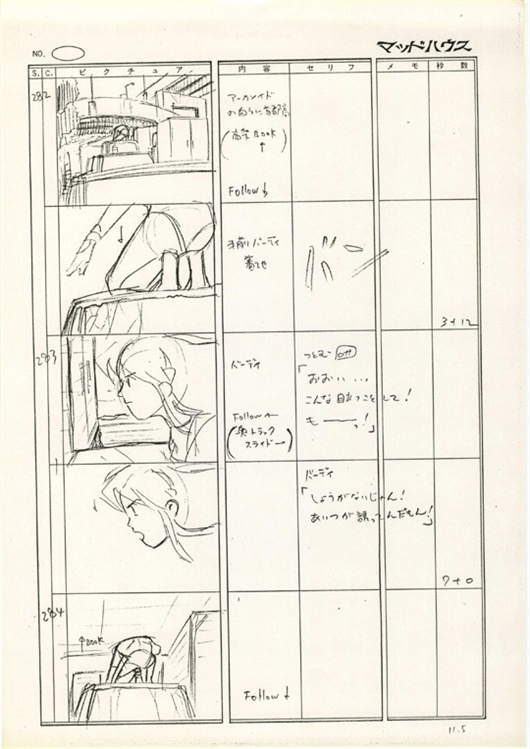 NO.
マッドハウス
S. C. ピクチュア 内容 セリフ メモ 秒数
282
高架 BOOK
↑
Follow
手前にバーディ
着地
バーン
3+12
283
バーディ
Follow ←
(奥トラック
スライド→)
つとむ off
「おおい、、、
こんな目立つことして!
も──っ!」
バーディ
「しょうがないじゃん!
あいつが誘ってんだもん!」
7+0
284
↑BOOK
Follow ↓
11.5